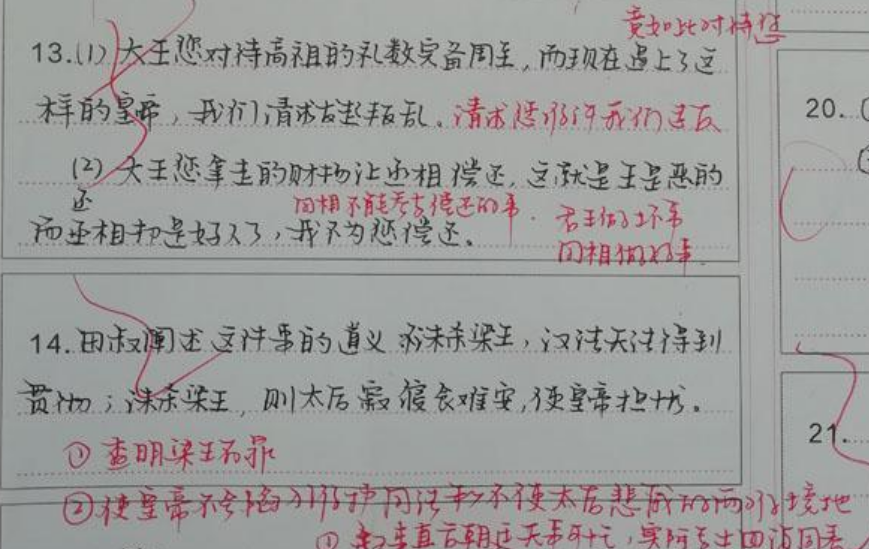 竟如此对待您
13.(1)大王您对待高祖的礼数完备周至，而现在遇上了这
样的皇帝，我们请求去起叛乱。请求您允许我们造反
(2)大王您拿走的财物让还相偿还，这就是王是恶的
还
田相不能去偿还的事. 君王做坏事
而丞相却是好人了，我不为您偿还。
田相做好事.
14.田叔阐述这件事的道义  求诛杀梁王，汉法无法得到
贯彻；诛杀梁王，则太后寝食难安，使皇帝担忧。
20.
①查明梁王有罪
②使皇帝不会陷入 不使太后悲 的两难境地
21.